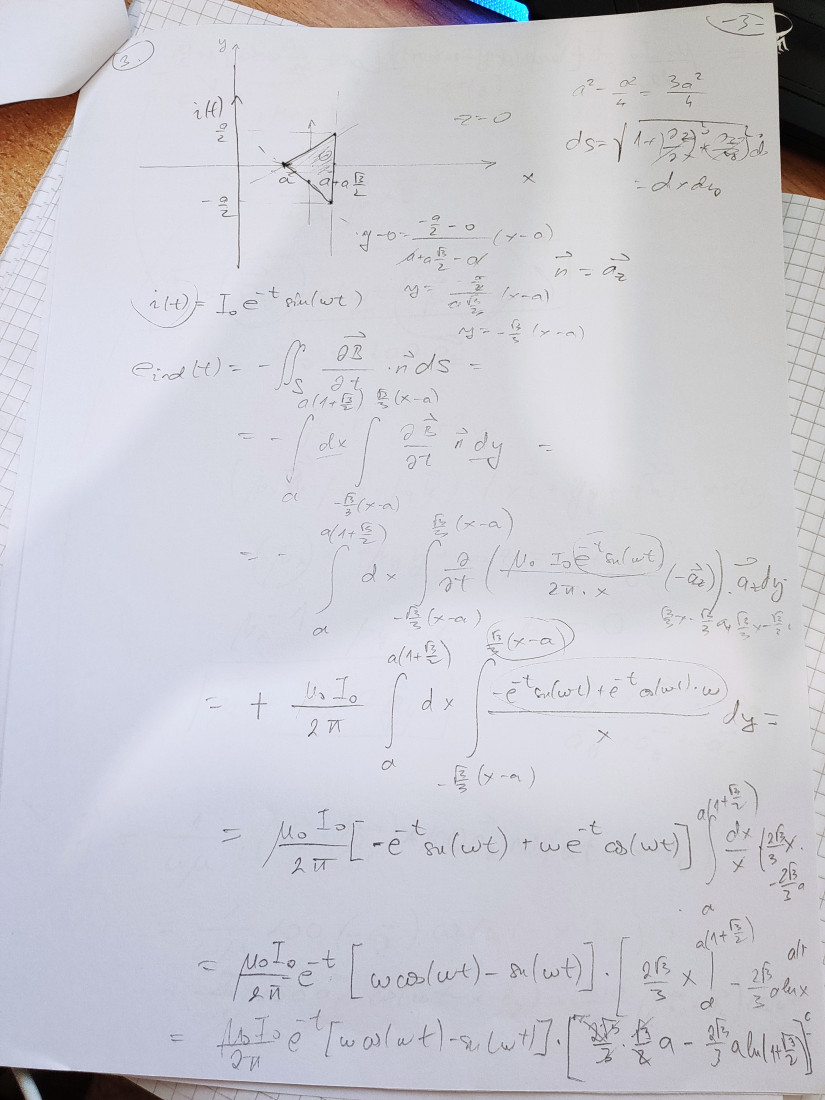 3.
-3-
y
i(t)
a/2
-a/2
a
a + a √3/2
x
z=0
a² - a²/4 = 3a²/4
dS = √(1+(∂z/∂x)²+(∂z/∂y)²) d
= dx dy
y-0 = (-a/2 - 0)/(a+a √3/2 - a) (x-a)
n⃗ = a⃗z
y = (x-a)
y = -√3/3 (x-a)
i(t) = I₀ e^-t sin(ωt)
eind(t) = - ∬S ∂B⃗/∂t · n⃗ dS =
= - ∫a^a(1+√3/2) dx ∫-√3/3(x-a)^√3/3(x-a) ∂B⃗/∂t n⃗ dy =
= - ∫a^a(1+√3/2) dx ∫-√3/3(x-a)^√3/3(x-a) ∂/∂t (μ₀ I₀ e^-t sin(ωt)/2π·x (-a⃗z)) · a⃗z dy
= + μ₀ I₀/2π ∫a^a(1+√3/2) dx ∫-√3/3(x-a)^√3/3(x-a) (-e^-t sin(ωt) + e^-t cos(ωt)·ω)/x dy =
= μ₀ I₀/2π [-e^-t sin(ωt) + ωe^-t cos(ωt)] ∫a^a(1+√3/2) dx/x (2√3/3 x - 2√3/3 a
= μ₀ I₀/2π e^-t [ω cos(ωt) - sin(ωt)] · [2√3/3 x |a^a(1+√3/2) - 2√3/3 a ln x
= μ₀ I₀/2π e^-t [ω cos(ωt) - sin(ωt)] · [2√3/3 · √3/2 a - 2√3/3 a ln(1+√3/2)]